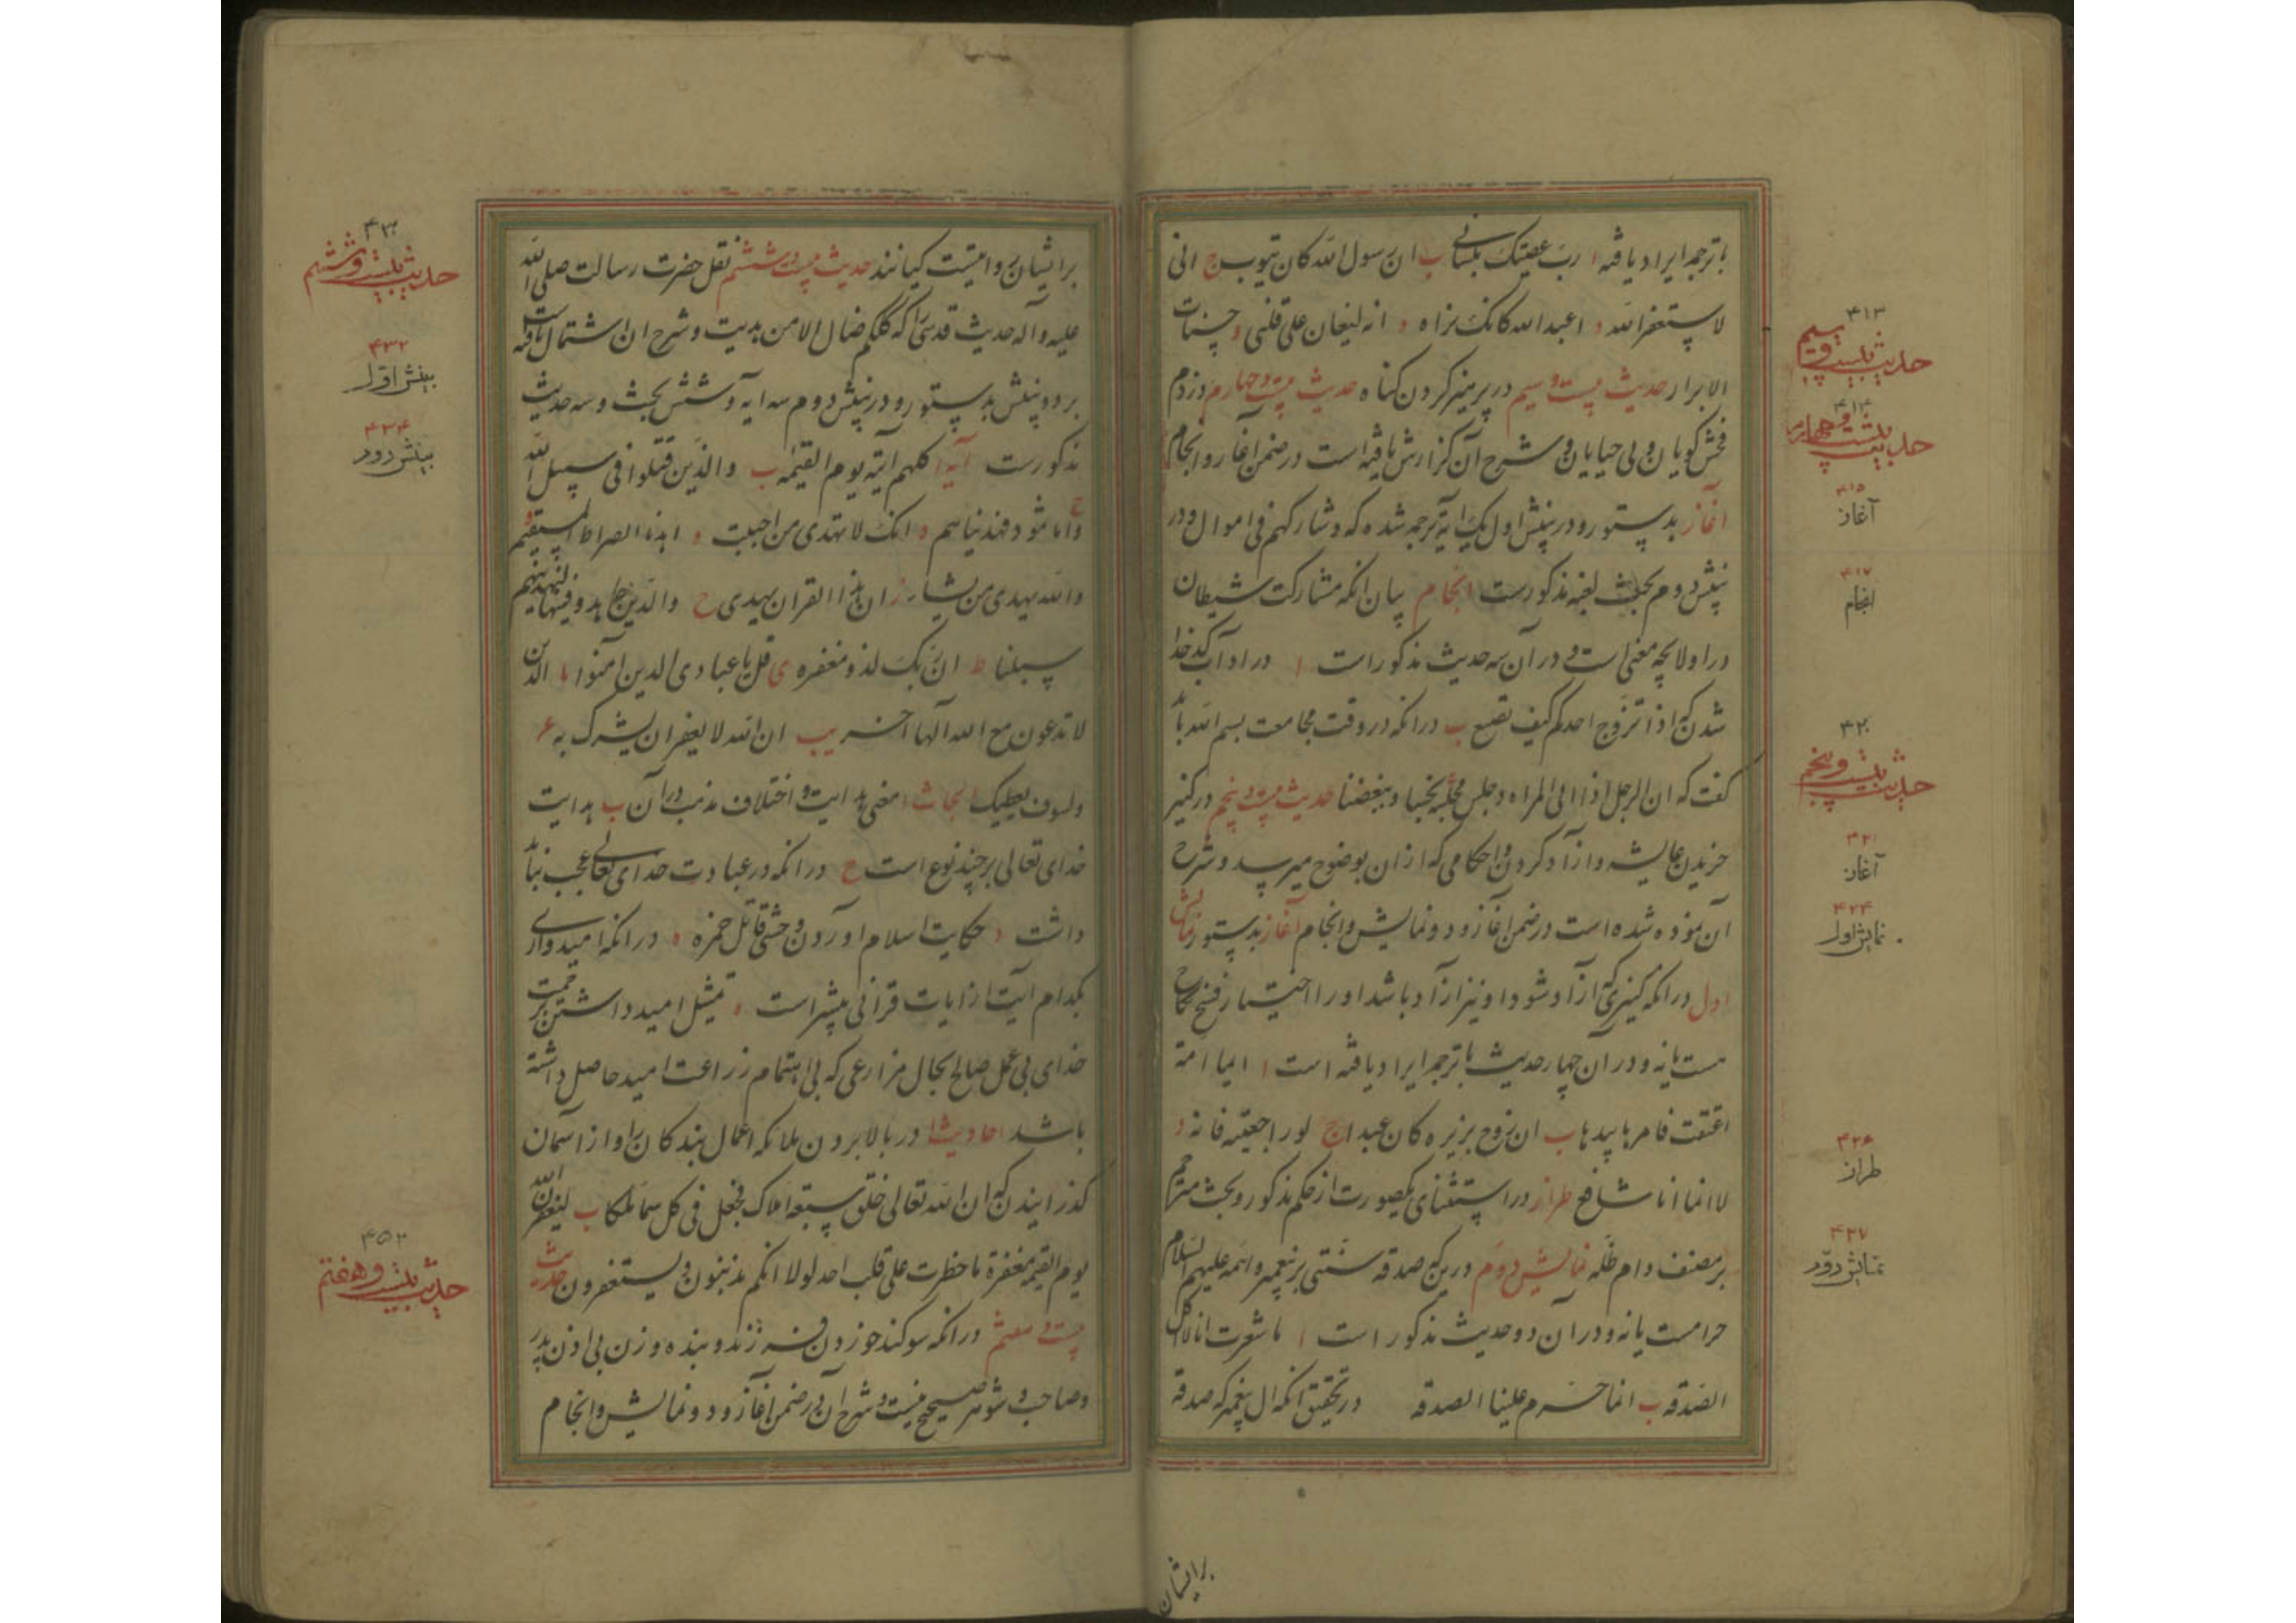 با ترجمه ایراد یافته ا رب عصیتک بلسانی ب ان رسول الله کان یتوب ج انی
لاستغفر الله د اعبد الله کانک تراه ه انه لیغان علی قلبی و حسنات
الابرار حدیث بیست و سیم در پرهیز کردن کناه حدیث بیست و چهارم در ذم
فحش کویان و بی حیایان و شرح آن کزارش یافته است در ضمن آغاز و انجام
آغاز بدستور و در بینش اول یک ایة ترجمه شده که و شارکهم فی الاموال و در
بینش دوم بحث لغیه مذکورست انجام بیان انکه مشارکت شیطان
در اولاد بچه معنی است و در آن سه حدیث مذکور است ا در اداب کدخدا
شدن که اذا تزوج احدکم کیف تصنع ب در انکه در وقت مجامعت بسم الله باید
کفت که ان الرجل اذا اتی المراه و جلس مجلسه ج بحبنا و ببغضنا حدیث بیست و پنجم در کنیز
خریدن عایشه و از آد کردن و احکامی که از ان بوضوح میرسد و شرح
آن نموده شده است در ضمن آغاز و دو نمایش و انجام آغاز بدستور نمایش
اول در انکه کنیزی که ازآد شود و او نیز ازآد باشد او را اختیار فسخ نکاح
هست یا نه و در آن چهار حدیث با ترجمه ایراد یافته است ا ایما امة
اعتقت فامرها بیدها ب ان زوج بریره کان عبدا ج لو راجعتیه فانه د
لا انما انا شافع طراز در استثنای یکصورت از حکم مذکور و بحث مترجم
بر مصنف دام ظله نمایش دوم درینکه صدقه سنتی بر پیغمبر و ائمه علیهم السلام
حرامست یا نه و در آن دو حدیث مذکور است ا ما شعرت انا لا ناکل
الصدقه ب انما حرم علینا الصدقه در تحقیق انکه ال پیغمبر که صدقه
برایشان
۴۱۳
حدیث بیست و سیم
۴۱۴
حدیث بیست و چهارم
۴۱۵
آغاز
۴۱۷
انجام
۴۲۰
حدیث بیست و پنجم
۴۲۱
آغاز
۴۲۴
نمایش اول
۴۲۶
طراز
۴۲۷
نمایش دوم
برایشان روا نیست کیانند حدیث بیست و ششم نقل حضرت رسالت صلی الله
علیه و آله حدیث قدسی را که کلکم ضال الا من هدیت و شرح ان اشتمال یافته است
بر دو بینش بدستور و در بینش دوم سه ایه و شش بحث و سه حدیث
مذکورست آیه ا کلهم آتیه یوم القیمه ب والذین قتلوا فی سبیل الله
ج و اما ثمود فهدیناهم د انک لا تهدی من احببت ه اهدنا الصراط المستقیم
والله یهدی من یشاء ز ان هذا القران یهدی ح والذین جاهدوا فینا لنهدینهم
سبلنا ط ان ربک لذو مغفره ی قل یا عبادی الذین امنوا یا الذین
لا تدعون مع الله آلها آخر یب ان الله لا یغفر ان یشرک به
ولسوف یعطیک ابحاث ا معنی هدایت و اختلاف مذهب در آن ب هدایت
خدای تعالی بر چند نوع است ج در انکه در عبادت خدای تعالی عجب نباید
داشت د حکایت اسلام اوردن وحشی قاتل حمزه ه در انکه امیدواری
بکدام آیت از ایات قرآنی بیشتر است و تمثیل امید داشتن بر رحمت
خدای بی عمل صالح بحال مزارعی که بی اهتمام زراعت امید حاصل داشته
باشد احادیث ا در بالا بردن ملائکه اعمال بندکان را و از آسمان
کذرانیدن که ان الله تعالی خلق سبعه املاک فجعل فی کل سماء ملکا ب لیغفرن الله
یوم القیمه مغفرة ما خطرت علی قلب احد لولا انکم تذنبون و یستغفرون حدیث
بیست و هفتم در انکه سوکند خوردن فرزند و بنده و زن بی اذن پدر
و صاحب و شوهر صحیح نیست و شرح آن در ضمن آغاز و دو نمایش و انجام
۴۳۰
حدیث بیست و ششم
۴۳۲
بینش اول
۴۳۴
بینش دوم
۴۵۲
حدیث بیست و هفتم